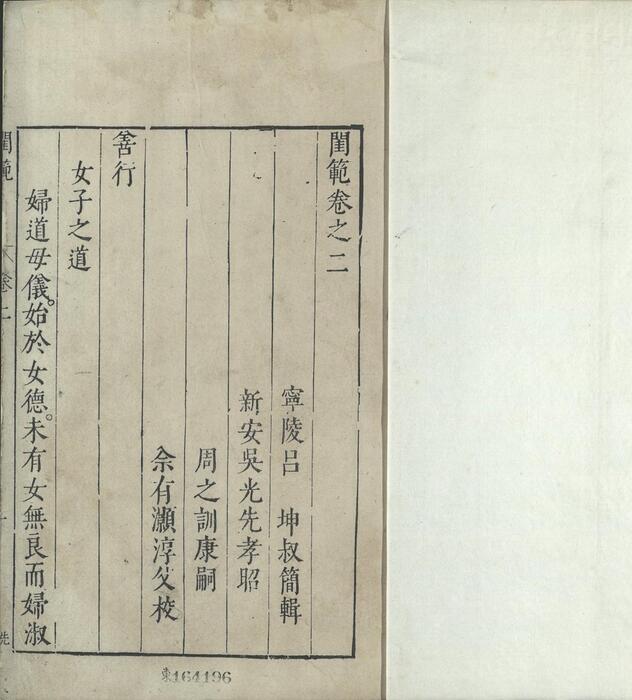 閨範卷之二
寧陵呂 坤叔簡輯
新安吳光先孝昭
周之訓康嗣
佘有灝淳父校
善行
女子之道
婦道母儀。始於女德。未有女無良而婦淑
閨範
卷二
東164196